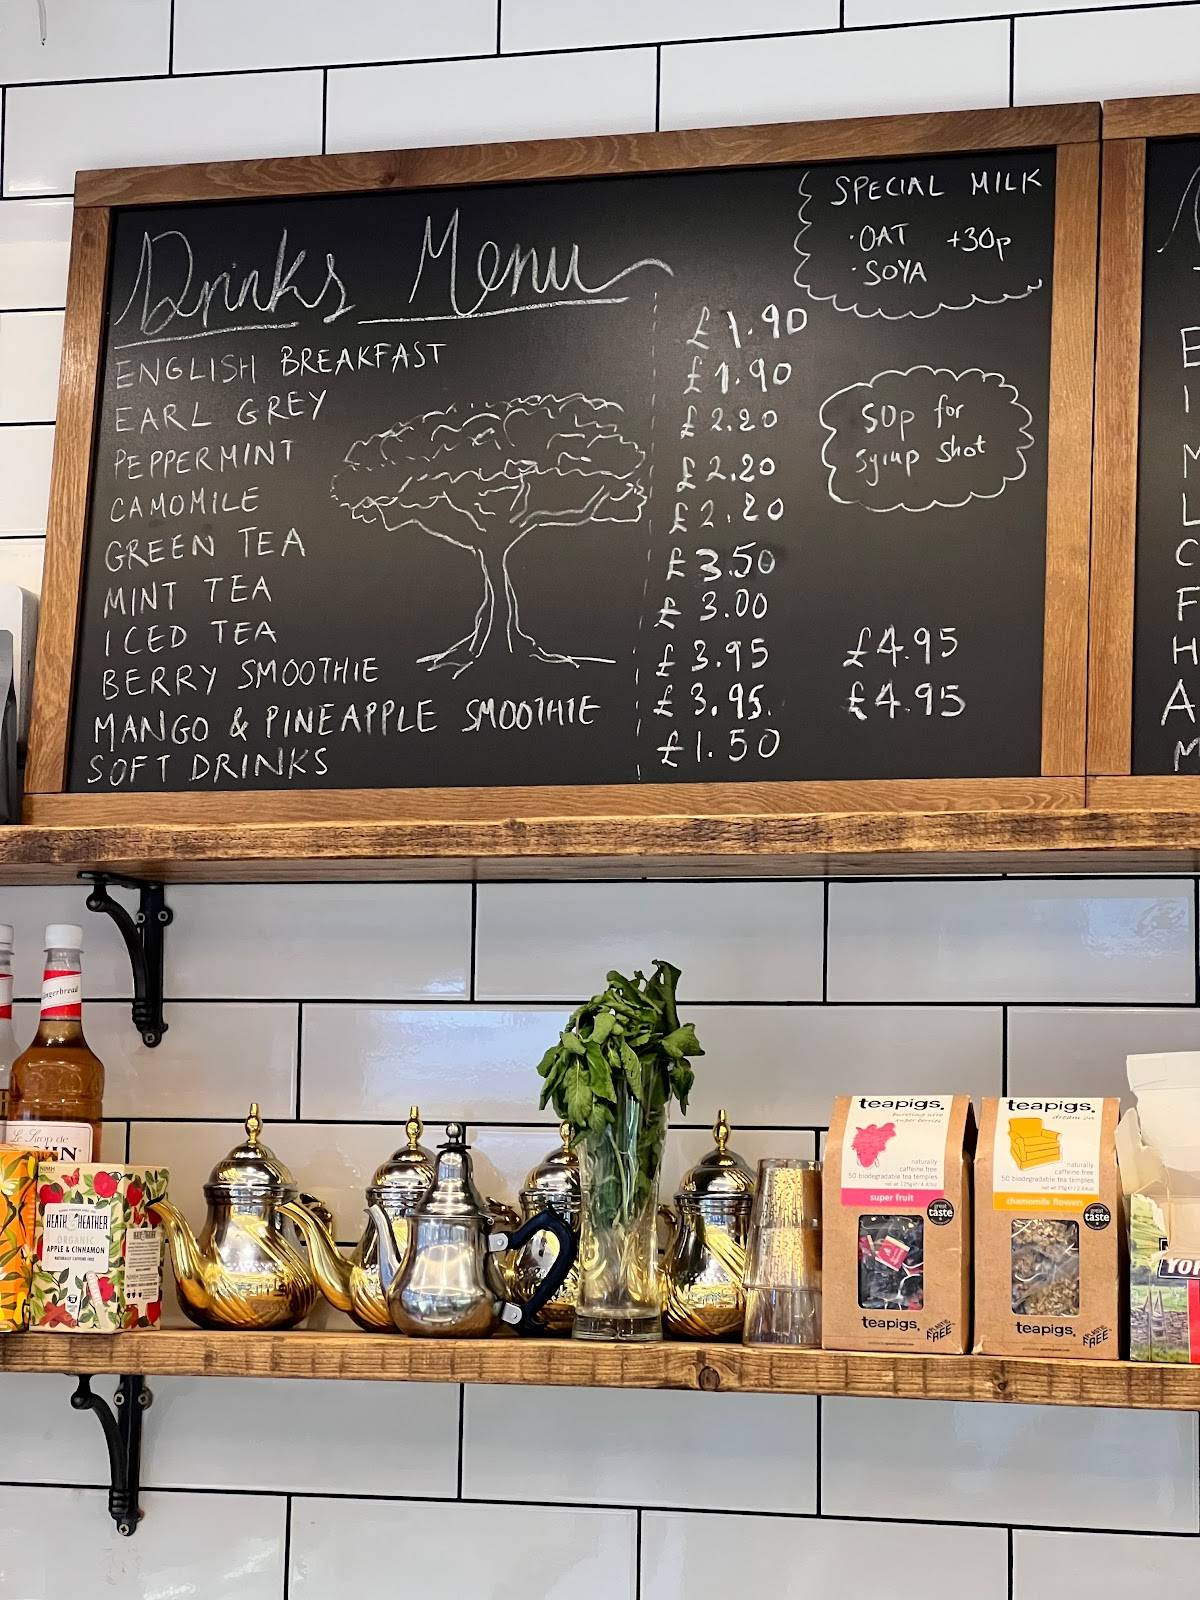 Drinks Menu
ENGLISH BREAKFAST £1.90
EARL GREY £1.90
PEPPERMINT £2.20
CAMOMILE £2.20
GREEN TEA £2.20
MINT TEA £3.50
ICED TEA £3.00
BERRY SMOOTHIE £3.95 £4.95
MANGO & PINEAPPLE SMOOTHIE £3.95. £4.95
SOFT DRINKS £1.50
SPECIAL MILK
·OAT +30p
·SOYA
50p for
syrup shot
E
I
M
L
C
F
H
A
M
Gingerbread
Le Sirop de
HEATH & HEATHER
ORGANIC
APPLE & CINNAMON
NATURALLY CAFFEINE FREE
teapigs.
bursting with
super berries
naturally
caffeine free
50 biodegradable tea temples
super fruit
great
taste
teapigs.
PLASTIC
FREE
teapigs.
dream on
naturally
caffeine free
50 biodegradable tea temples
chamomile flowers
great
taste
teapigs.
PLASTIC
FREE
YOR